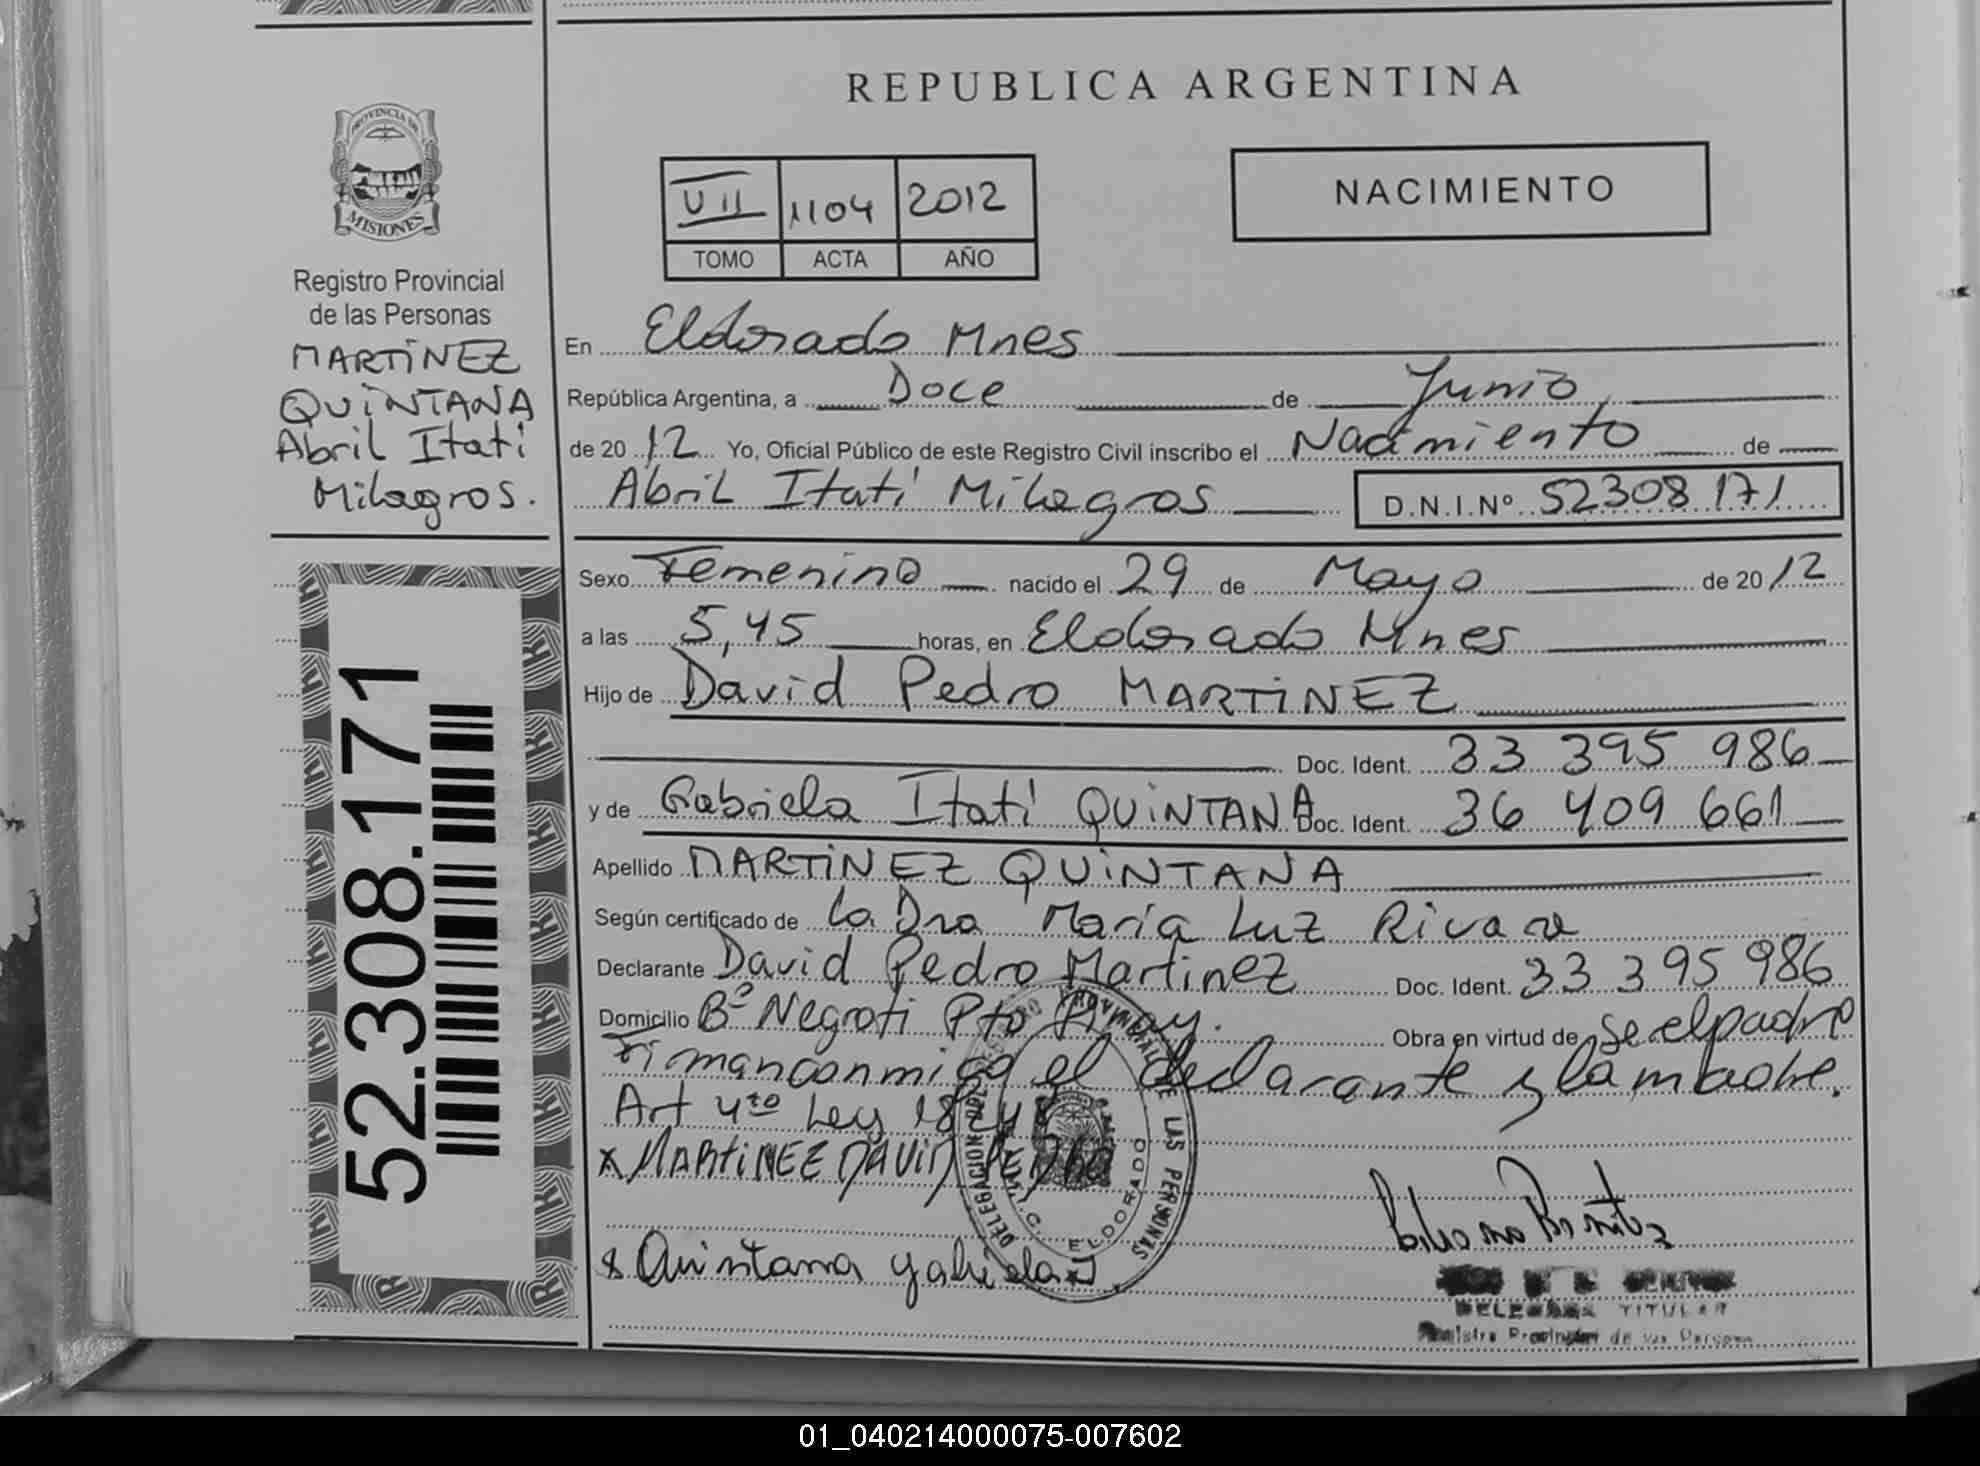 REPUBLICA ARGENTINA
PROVINCIA DE
MISIONES
Registro Provincial
de las Personas
MARTINEZ
QUINTANA
Abril Itatí
Milagros.
52.308.171
VII 1104 2012
TOMO ACTA AÑO
NACIMIENTO
En Eldorado Mnes
República Argentina, a Doce de Junio
de 2012 Yo, Oficial Público de este Registro Civil inscribo el Nacimiento de
Abril Itatí Milagros D.N.I.Nº 52308171
Sexo Femenino nacido el 29 de Mayo de 2012
a las 5,45 horas, en Eldorado Mnes
Hijo de David Pedro MARTINEZ
Doc. Ident. 33 395 986
y de Gabriela Itatí QUINTANA Doc. Ident. 36 409 661
Apellido MARTINEZ QUINTANA
Según certificado de la Dra María Luz
Declarante David Pedro Martinez Doc. Ident. 33 395 986
Domicilio Bº Negroti Pto Piray. Obra en virtud de Se el padre
Firman conmigo el declarante y la madre.
Art 4to Ley 18248
x MARTINEZ DAVID PEDRO
x Quintana Gabriela I.
DELEGACION DEL REGISTRO PROVINCIAL DE LAS PERSONAS
ELDORADO
TITULAR
01_040214000075-007602